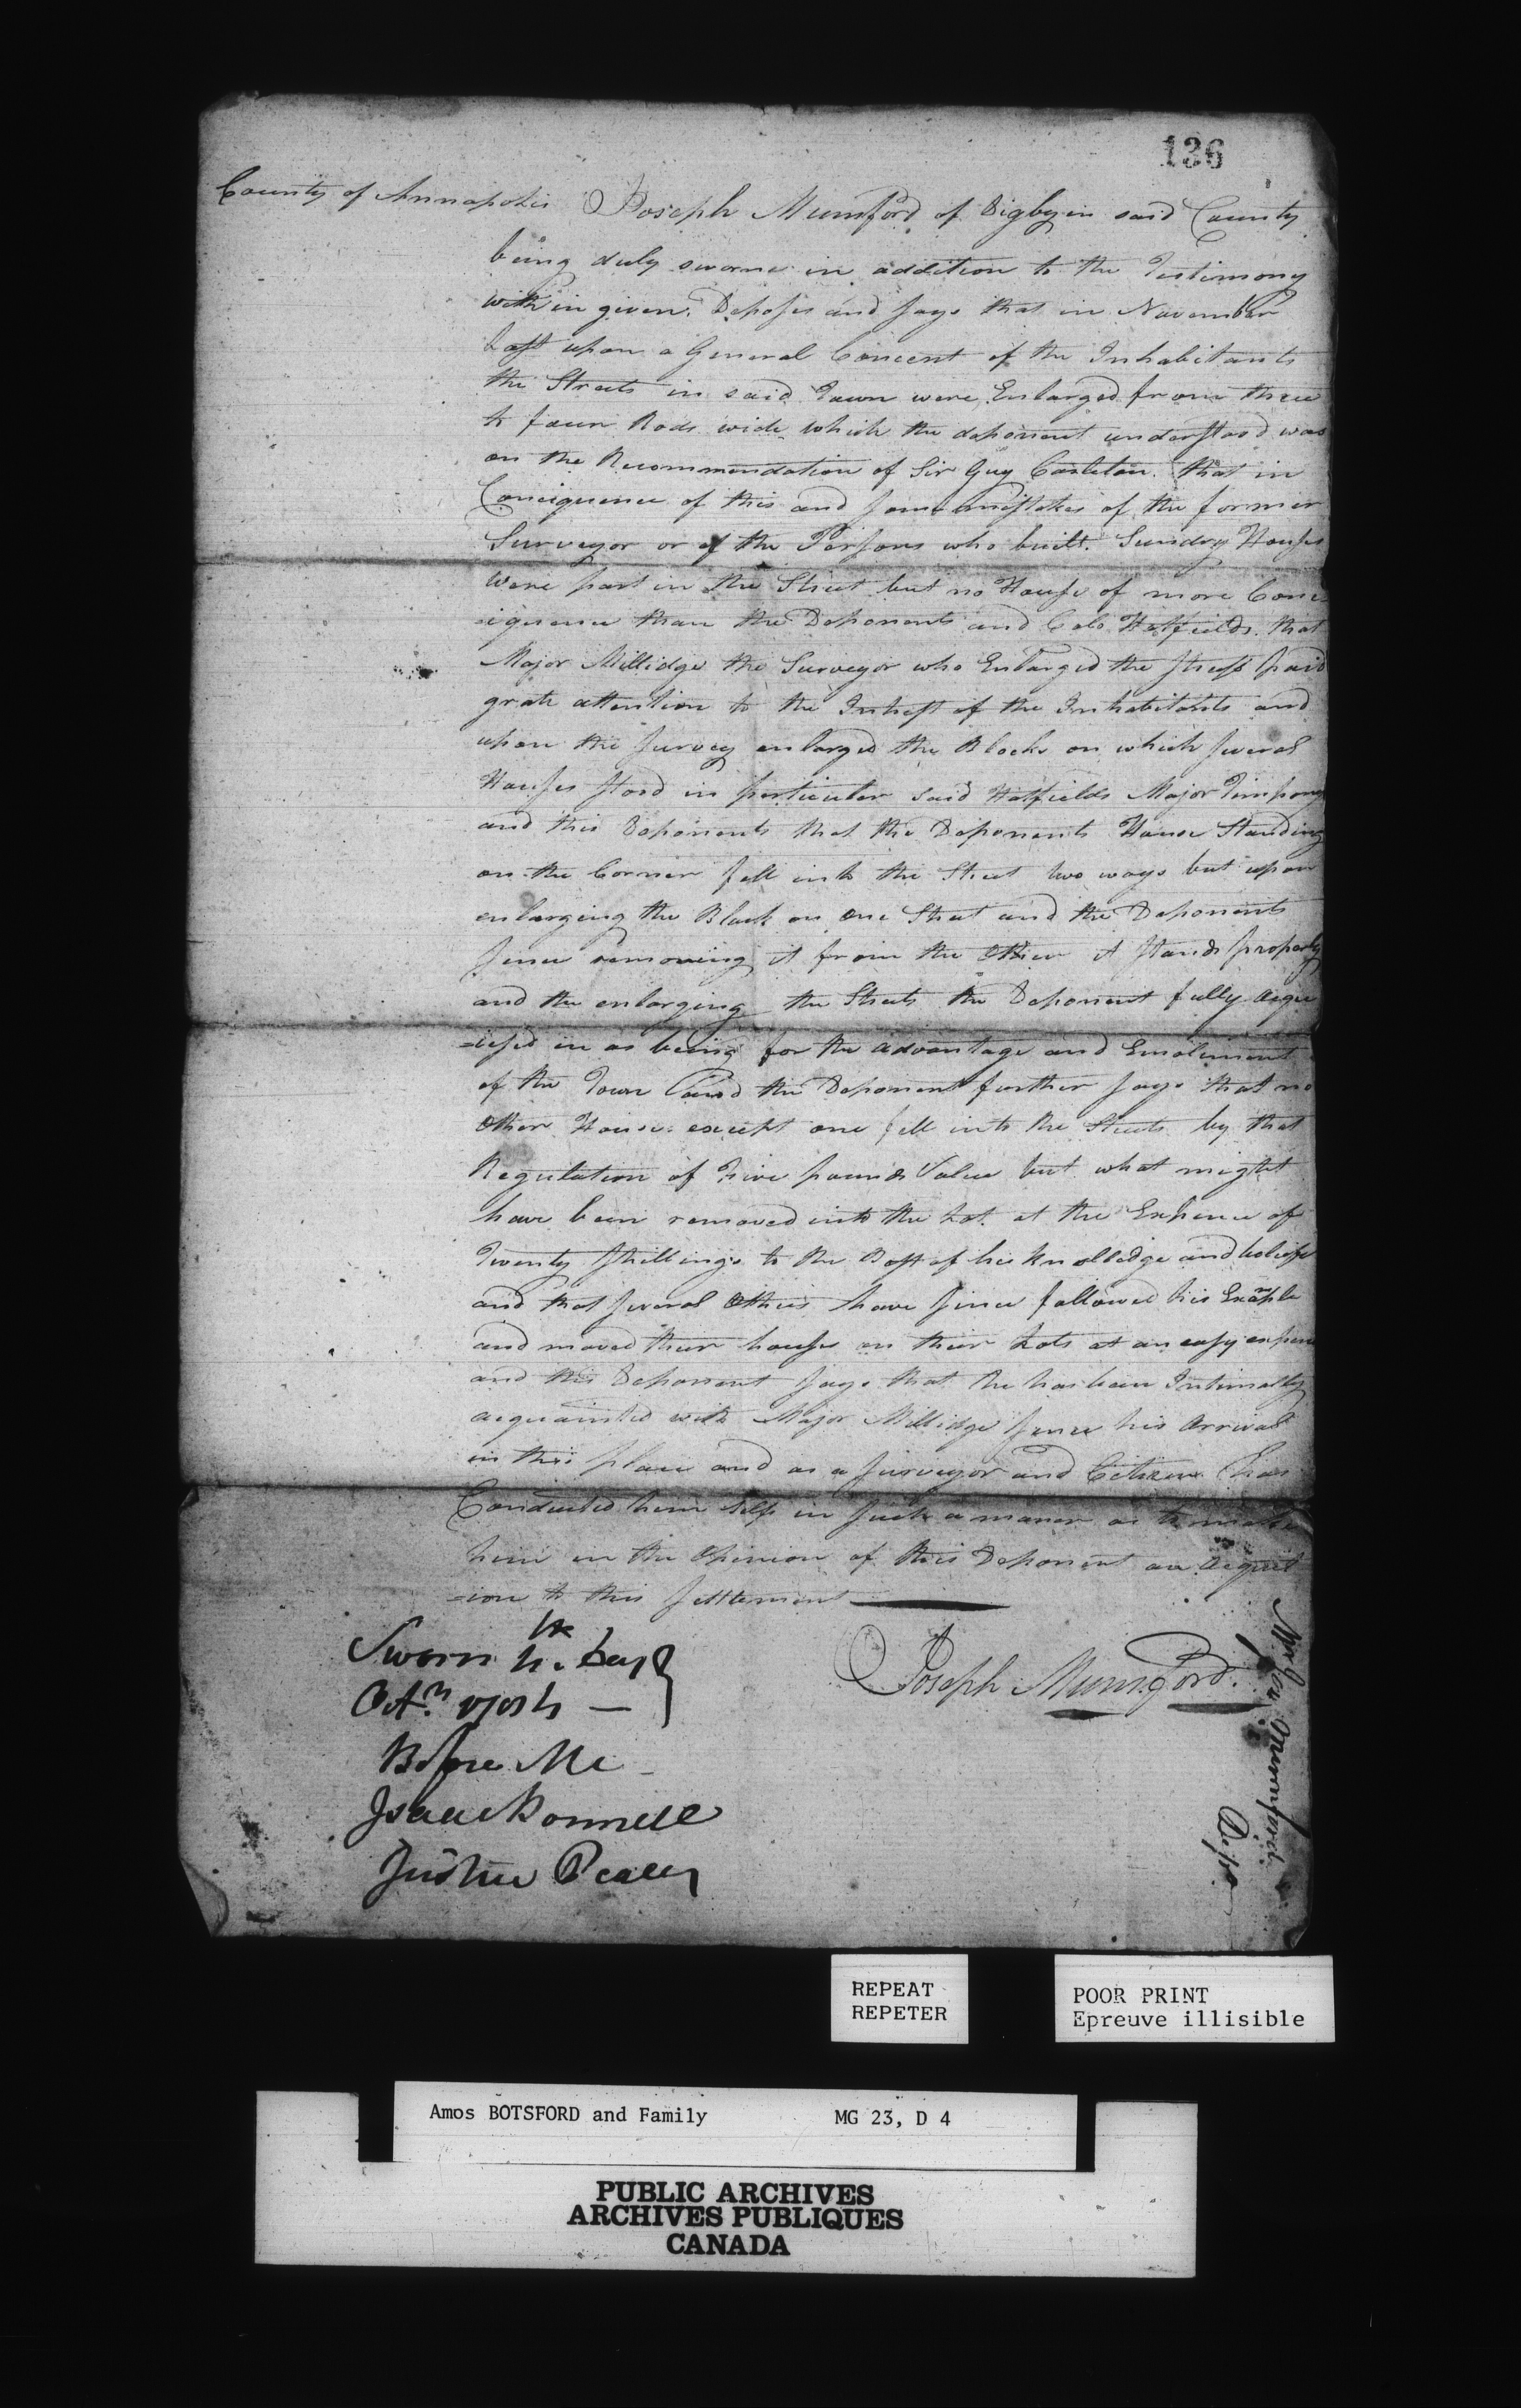 136
County of Annapolis Joseph Mumford of Digby in said County
being duly sworne in addition to the Testimony
within given. Deposes and says that in November
Last upon a General Concent of the Inhabitants
the Streets in said Town were Enlarged from three
to four Rods wide which the deponent understood was
on the Recommendation of Sir Guy Carleton. that in
Consiquence of this and some mistakes of the former
Surveyor or of the Persons who built. Sundry Houses
were part in the Street but no House of more Cons-
-iquence than the Deponents and Colo Hatfields. that
Major Millidge the Surveyor who Enlarged the streets paid
grate attention to the Intrest of the Inhabitants and
upon the survey enlarged the Blocks on which several
Houses stood in perticuler said Hatfields Major Timpany
and this Deponents that the Deponents House Standing
on the Corner fell into the Street two ways but upon
enlarging the Block on one Street and the Deponents
sence removing it from the other it stands properly
and the enlarging the Streets the Deponent fully acqu
-iesed in as being for the advantage and Emolument
of the Town and the Deponent further says that no
other House except one fell into the Streets by that
Regulation of Five pounds Value but what might
have been removed into the Lot at the Expence of
Twenty shillings to the Best of his knolledge and beliefe
and that several others have since followed his Example
and moved their houses on their Lots at an easy expence
and this Deponent says that he has been Intimatly
acquainted with Major Millidge sence his arrival
in this place and as a surveyor and Citizen has
Conducted him self in such a maner as to make
him in the Opinion of this Deponent an acquisit
-ion to this settlement
Sworn 4th Day
Octr 1784
Before Me
Isaac Bonnell
Justice Peace
Joseph Mumford.
Major Mumford
Depo
REPEAT
REPETER
POOR PRINT
Epreuve illisible
Amos BOTSFORD and Family MG 23, D 4
PUBLIC ARCHIVES
ARCHIVES PUBLIQUES
CANADA